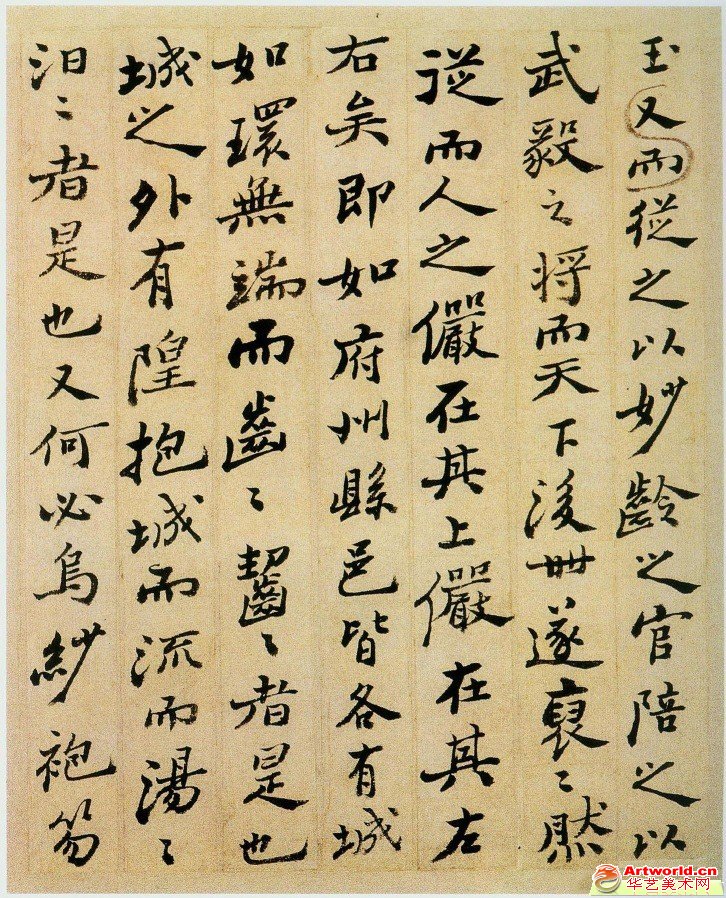 玉又而從之以妙齡之官陪之以
武毅之将而天下後世遂裒〻然
從而人之儼在其上儼在其左
右矣即如府州縣邑皆各有城
如環無端而齒〻齧〻者是也
城之外有隍抱城而流而湯〻
汩〻者是也又何必烏紗袍笏
Artworld.cn
华艺美术网